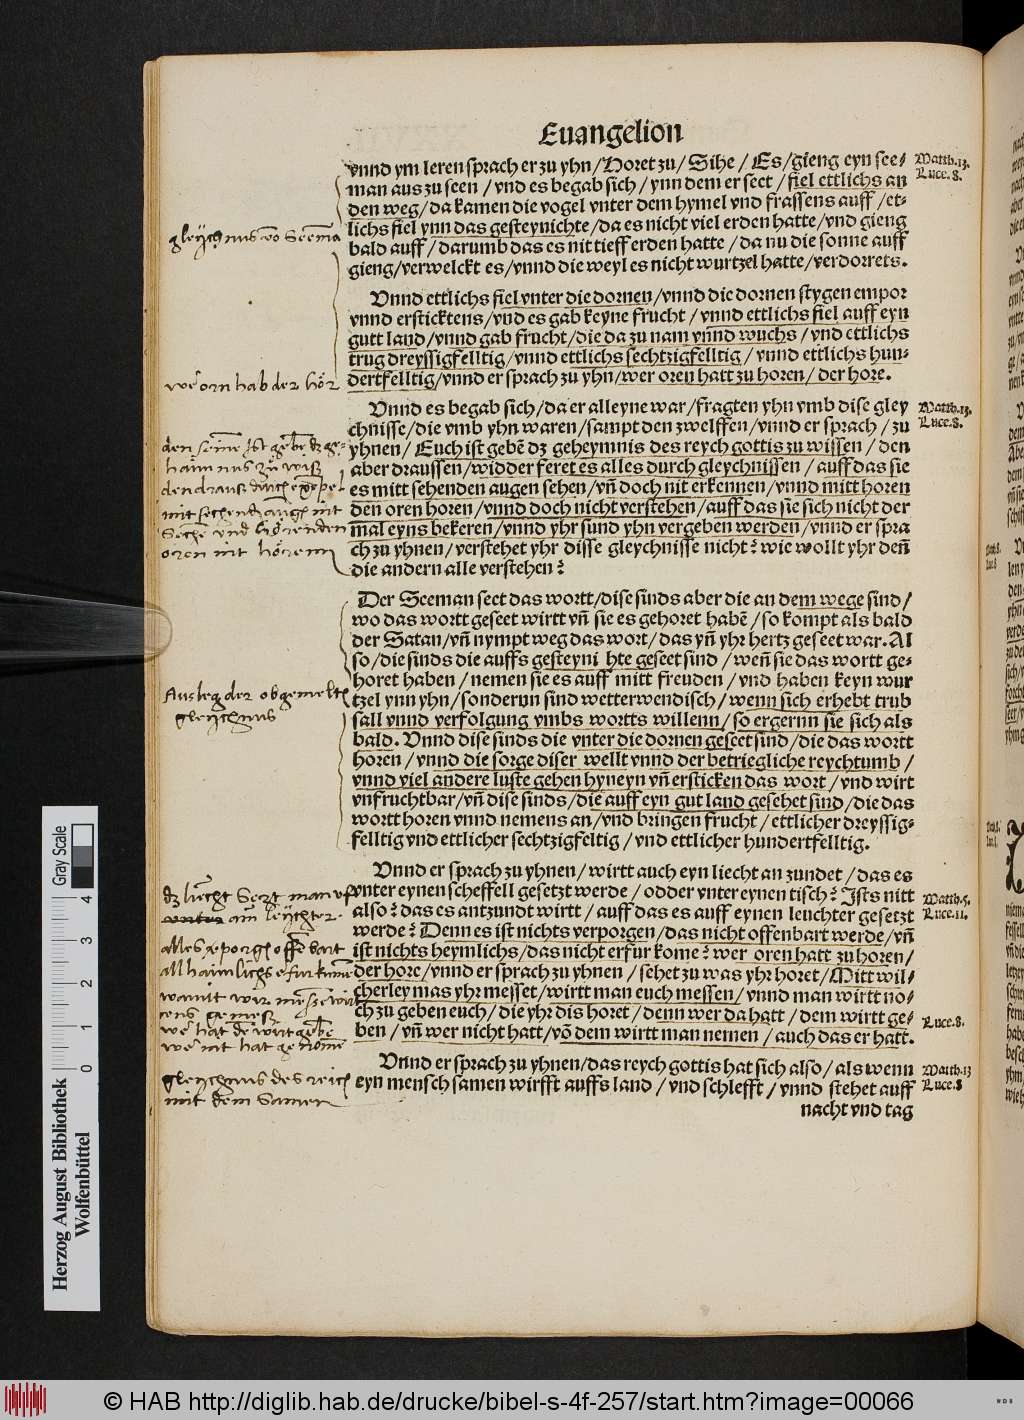 Euangelion
vnnd ym leren sprach er zu yhn / Horet zu / Sihe / Es / gieng eyn see-
man aus zu seen / vnd es begab sich / ynn dem er seet / fiel ettlichs an
den weg / da kamen die vogel vnter dem hymel vnd frassens auff / et-
lichs fiel ynn das gesteynichte / da es nicht viel erden hatte / vnd gieng
bald auff / darumb das es nit tieff erden hatte / da nu die sonne auff
gieng / verwelckt es / vnnd die weyl es nicht wurtzel hatte / verdorrets.
Matth. 13.
Luce. 8.
gleÿchnus võ Seemã
Vnnd ettlichs fiel vnter die dornen / vnnd die dornen stygen empor
vnnd ersticktens / vnd es gab keyne frucht / vnnd ettlichs fiel auff eyn
gutt land / vnnd gab frucht / die da zu nam vnnd wuchs / vnd ettlichs
trug dreyssigfelltig / vnnd ettlichs sechtzigfelltig / vnnd ettlichs hun-
dertfelltig / vnnd er sprach zu yhn / wer oren hatt zu horen / der hore.
wer orn hab der hör
Vnnd es begab sich / da er alleyne war / fragten yhn vmb dise gley
chnisse / die vmb yhn waren / sampt den zwelffen / vnnd er sprach / zu
yhnen / Euch ist gebẽ dz geheymnis des reych gottis zu wissen / den
aber draussen / widder feret es alles durch gleychnissen / auff das sie
es mitt sehenden augen sehen / vñ doch nit erkennen / vnnd mitt horen
den oren horen / vnnd doch nicht verstehen / auff das sie sich nicht der
mal eyns bekeren / vnnd yhr sund yhn vergeben werden / vnnd er spra
ch zu yhnen / verstehet yhr disse gleychnisse nicht? wie wollt yhr deñ
die andern alle verstehen?
Matth. 13.
Luce. 8.
haimnus zu wisz
oren nit hören
Der Seeman seet das wortt / dise sinds aber die an dem wege sind /
wo das wortt geseet wirtt vñ sie es gehoret habẽ / so kompt als bald
der Satan / vñ nympt weg das wort / das yñ yhr hertz geseet war. Al
so / die sinds die auffs gesteyni hte geseet sind / weñ sie das wortt ge-
horet haben / nemen sie es auff mitt freuden / vnd haben keyn wur
tzel ynn yhn / sonderun sind wetterwendisch / wenn sich erhebt trub
sall vnnd verfolgung vmbs wortts willenn / so ergernn sie sich als
bald. Vnnd dise sinds die vnter die dornen geseet sind / die das wortt
horen / vnnd die sorge diser wellt vnnd der betriegliche reychtumb /
vnnd viel andere luste gehen hyneyn vñ ersticken das wort / vnd wirt
vnfruchtbar / vñ dise sinds / die auff eyn gut land gesehet sind / die das
wortt horen vnnd nemens an / vnd bringen frucht / ettlicher dreyssig-
felltig vnd ettlicher sechtzigfeltig / vnd ettlicher hundertfelltig.
Ausleg der obgemeltẽ
gleÿchnus
Vnnd er sprach zu yhnen / wirtt auch eyn liecht an zundet / das es
vnter eynen scheffell gesetzt werde / odder vnter eynen tisch? Ists nitt
also? das es antzundt wirtt / auff das es auff eynen leuchter gesetzt
werde? Denn es ist nichts verporgen / das nicht offenbart werde / vñ
ist nichts heymlichs / das nicht erfur kome? wer oren hatt zu horen /
der hore / vnnd er sprach zu yhnen / sehet zu was yhr horet / Mitt wil-
cherley mas yhr messet / wirtt man euch messen / vnnd man wirtt no-
ch zu geben euch / die yhr dis horet / denn wer da hatt / dem wirtt ge-
ben / vñ wer nicht hatt / võ dem wirtt man nemen / auch das er hatt.
Matth. 5.
Luce. 11.
Luce. 8.
dz liecht Sezt man uf
unter am leÿchter.
Vnnd er sprach zu yhnen / das reych gottis hat sich also / als wenn
eyn mensch samen wirfft auffs land / vnd schlefft / vnnd stehet auff
nacht vnd tag
Matth. 13
Luce. 8
gleÿchnus des reich
mit dem Samen
Gray Scale
0 1 2 3 4
Herzog August Bibliothek
Wolfenbüttel
© HAB http://diglib.hab.de/drucke/bibel-s-4f-257/start.htm?image=00066